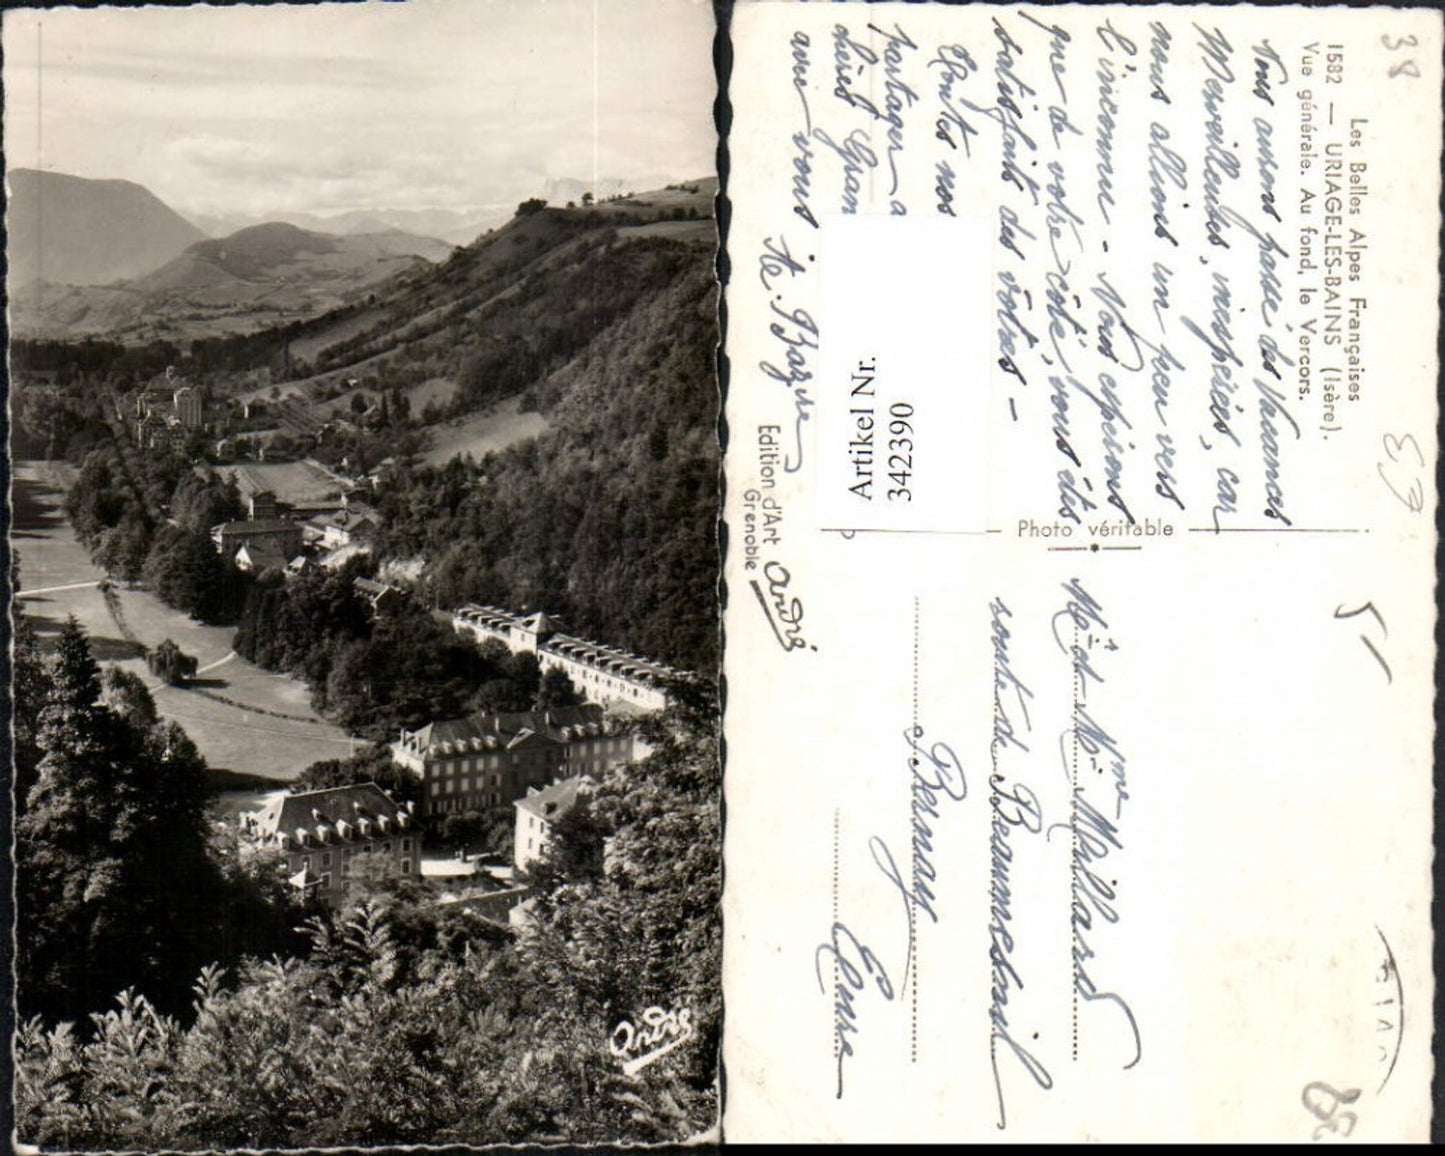 André
Les Belles Alpes Françaises
1582 — URIAGE-LES-BAINS (Isère).
Vue générale. Au fond, le Vercors.
Nous avons passé des Vacances
Merveilleuses, inespérées, car
nous allions un peu vers
l'inconnu - Nous espérons
que de votre côté, vous êtes
satisfaits des vôtres -
Toutes nos
partager a
chères Gran
avec vous
Edition d'Art André
Grenoble
Photo véritable
Mr et Mme Maillard
route de Beaumesnil
Bernay
Eure
Artikel Nr.
3423390
38